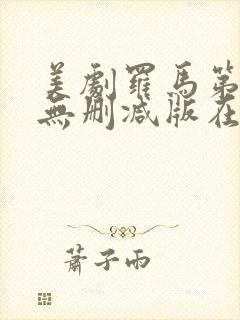 美劇羅馬第
無刪減版在
蕭子雨